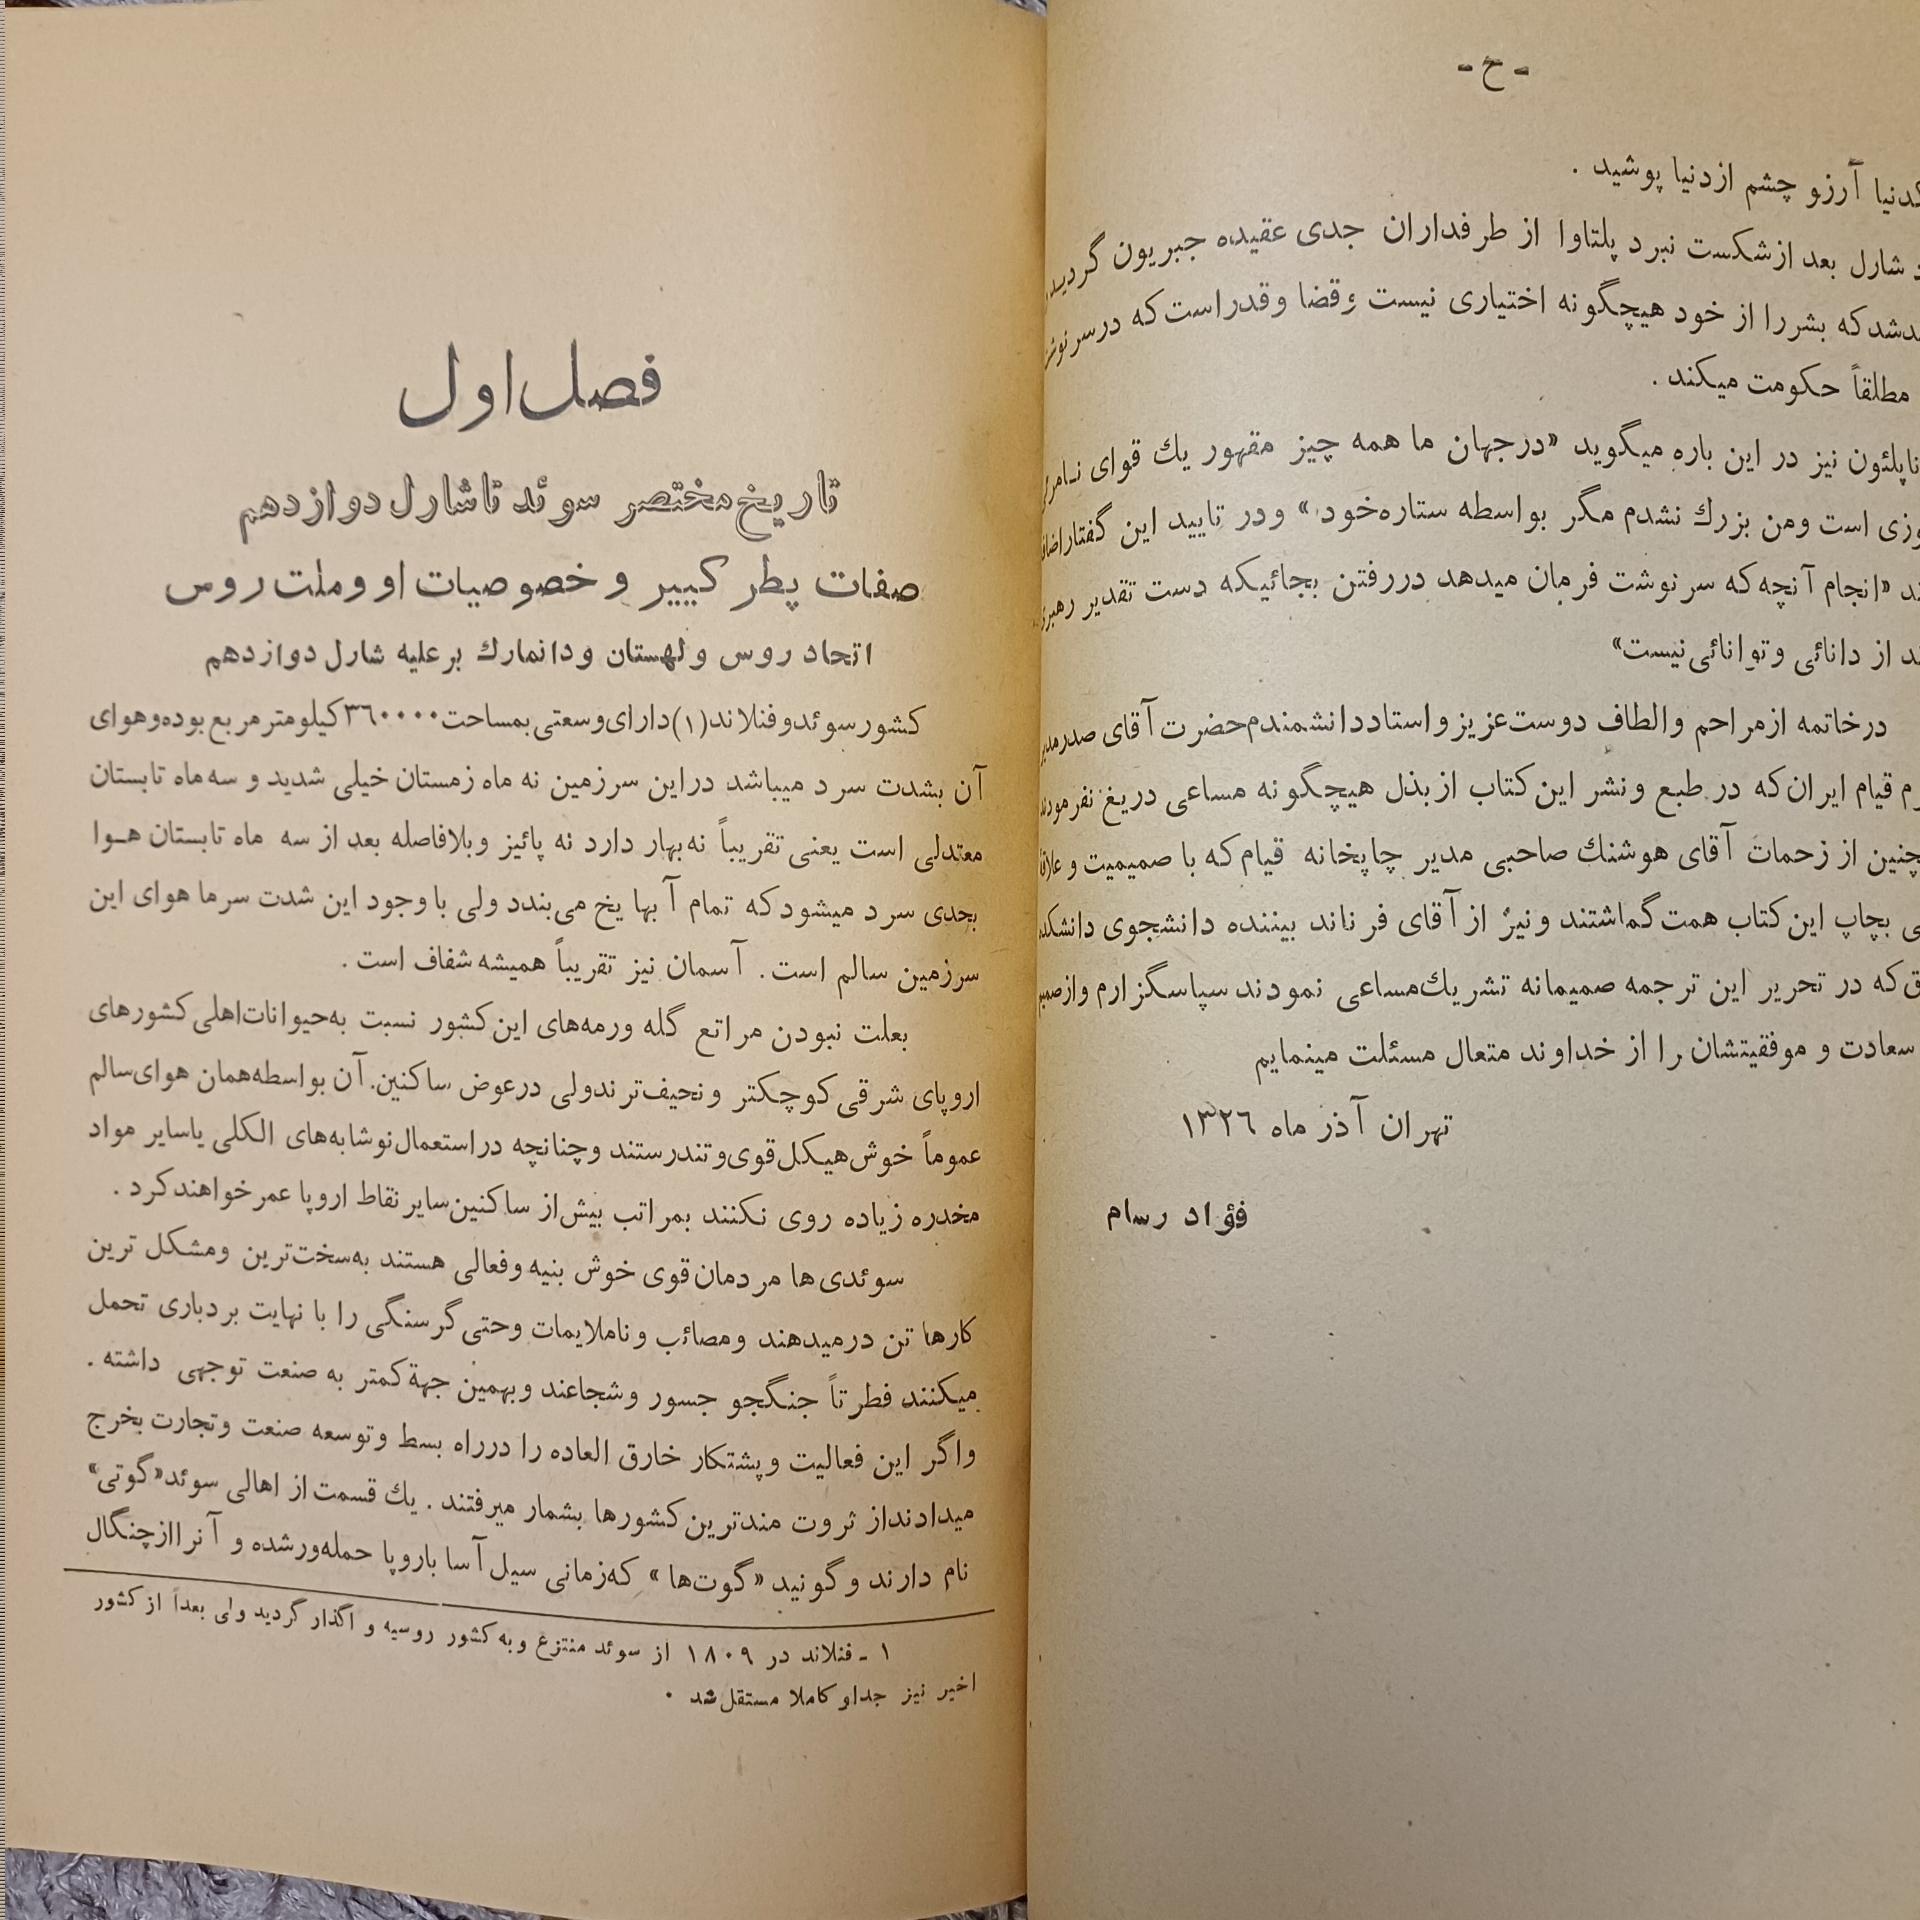 - ح -
آرزو چشم ازدنیا پوشید .
شارل بعد ازشکست نبرد پلتاوا از طرفداران جدی عقیده جبریون گردید
که بشررا از خود هیچگونه اختیاری نیست و قضا وقدراست که درسرنوشت
مطلقاً حکومت میکند .
ناپلئون نیز در این باره میگوید «درجهان ما همه چیز مقهور یك قوای نـامرئی
است ومن بزرك نشدم مگر بواسطه ستاره‌خود» ودر تایید این گفتار
«انجام آنچه‌که سرنوشت فرمان میدهد دررفتن بجائیکه دست تقدیر
از دانائی وتوانائی‌نیست»
درخاتمه ازمراحم والطاف دوست‌عزیز واستاددانشمندم‌حضرت آقای
قیام ایران‌که در طبع ونشر این‌کتاب ازبذل هیچگونه مساعی دریغ
از زحمات آقای هوشنك صاحبی مدیر چاپخانه قیام‌که با صمیمیت و
بچاپ این‌کتاب همت گماشتند ونیز از آقای فرناند بیننده دانشجوی
که در تحریر این ترجمه صمیمانه تشریك‌مساعی نمودند سپاسگزارم
سعادت و موفقیتشان را از خداوند متعال مسئلت مینمایم
تهران آذر ماه ۱۳۲٦
فؤاد رسام
فصل اول
تاریخ مختصر سوئد تا شارل دوازدهم
صفات پطر کبیر و خصوصیات او وملت روس
اتحاد روس ولهستان ودانمارك برعلیه شارل دوازدهم
کشورسوئدوفنلاند(۱)دارای‌وسعتی‌بمساحت۳٦۰۰۰۰کیلومترمربع‌بوده‌وهوای
آن بشدت سرد میباشد دراین سرزمین نه ماه زمستان خیلی شدید و سه‌ماه تابستان
معتدلی است یعنی تقریباً نه‌بهار دارد نه پائیز وبلافاصله بعد از سه ماه تابستان هـوا
بحدی سرد میشودکه تمام آبها یخ می‌بندد ولی باوجود این شدت سرما هوای این
سرزمین سالم است . آسمان نیز تقریباً همیشه شفاف است .
بعلت نبودن مراتع گله ورمه‌های این‌کشور نسبت به‌حیوانات‌اهلی‌کشورهای
اروپای شرقی‌کوچکتر ونحیف‌ترندولی درعوض ساکنین.آن بواسطه‌همان هوای‌سالم
عموماً خوش‌هیکل‌قوی‌وتندرستند وچنانچه دراستعمال‌نوشابه‌های الکلی یاسایر مواد
مخدره زیاده روی نکنند بمراتب بیش‌از ساکنین‌سایرنقاط اروپا عمرخواهندکرد .
سوئدی‌ها مردمان‌قوی خوش بنیه وفعالی هستند به‌سخت‌ترین ومشکل ترین
کارها تن درمیدهند ومصائب وناملایمات وحتی‌گرسنگی را با نهایت بردباری تحمل
میکنند فطرتاً جنگجو جسور وشجاعند وبهمین جهة‌کمتر به صنعت توجهی داشته .
واگر این فعالیت وپشتکار خارق العاده را درراه بسط وتوسعه صنعت وتجارت بخرج
میدادنداز ثروت مندترین‌کشورها بشمار میرفتند . یك قسمت‌از اهالی سوئد«گوتی»
نام دارند وگونید «گوت‌ها» که‌زمانی سیل‌آسا باروپا حمله‌ورشده و آنراازچنگال
۱ - فنلاند در ۱۸۰۹ از سوئد منتزع وبه‌کشور روسیه و اگذار گردید ولی بعداً از کشور
اخیر نیز جداوکاملا مستقل‌شد .